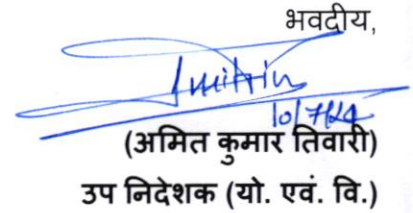 भवदीय,
10/7/24
(अमित कुमार तिवारी)
उप निदेशक (यो. एवं. वि.)